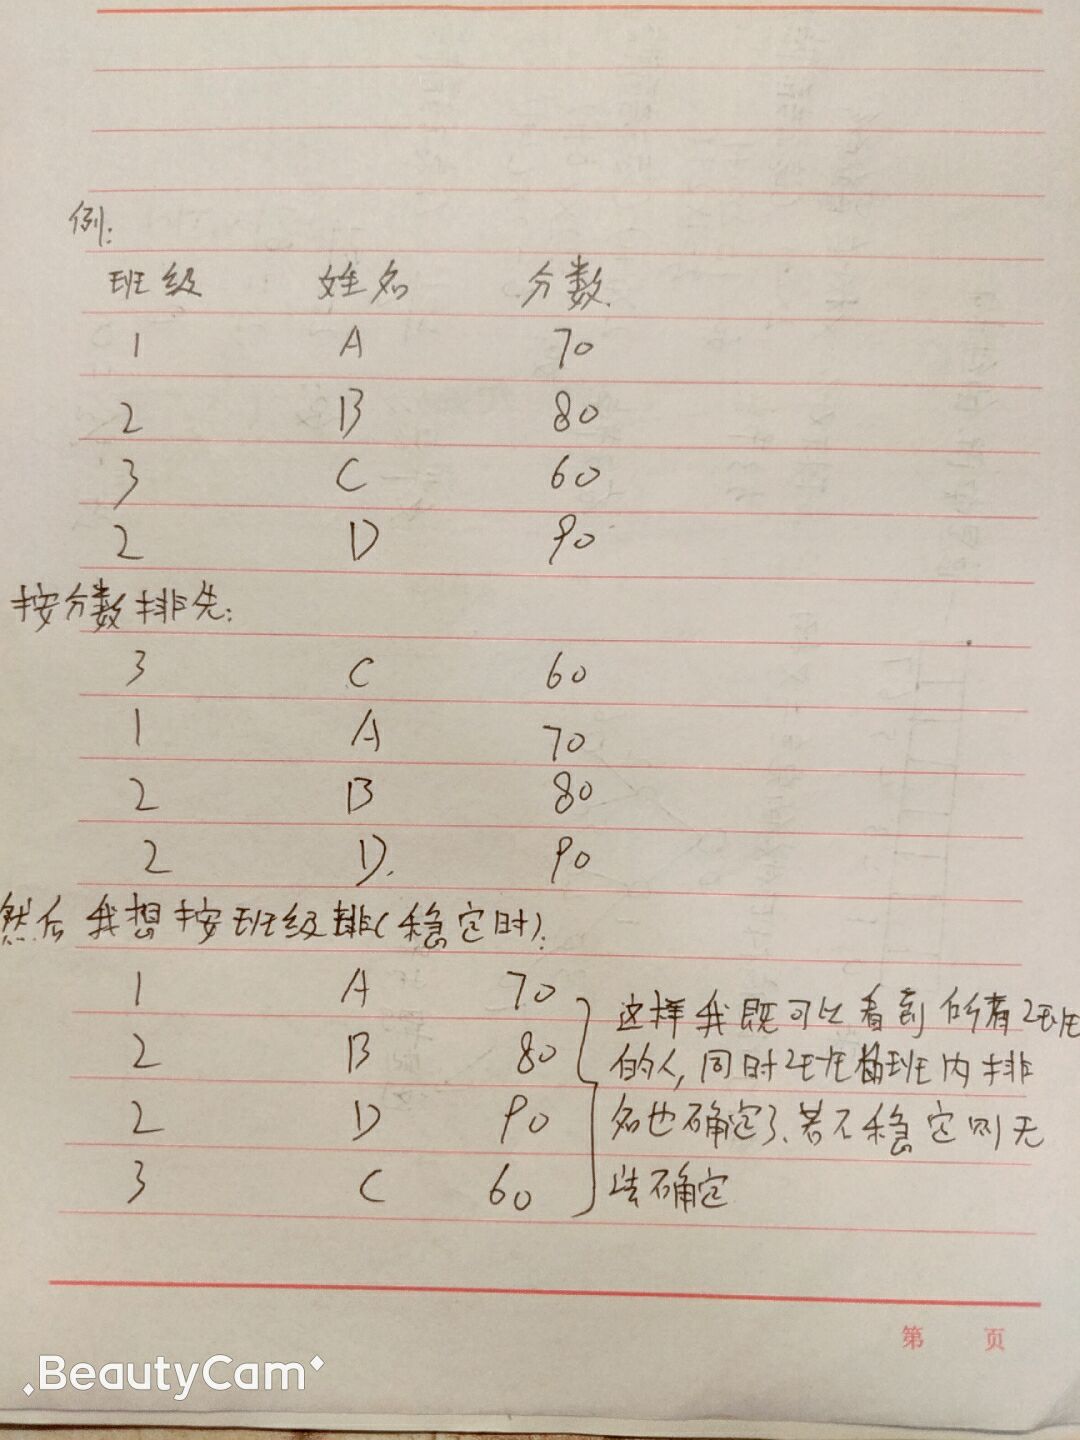 例:
班级 姓名 分数.
1 A 70
2 B 80
3 C 60
2 D 90
按分数排先:
3 C 60
1 A 70
2 B 80
2 D. 90
然后我想按班级排(稳定时):
1 A 70
2 B 80
2 D 90
3 C 60
这样我既可以看到所有2班
的人,同时2班 班内排
名也确定了.若不稳定则无
法确定
第 页
BeautyCam